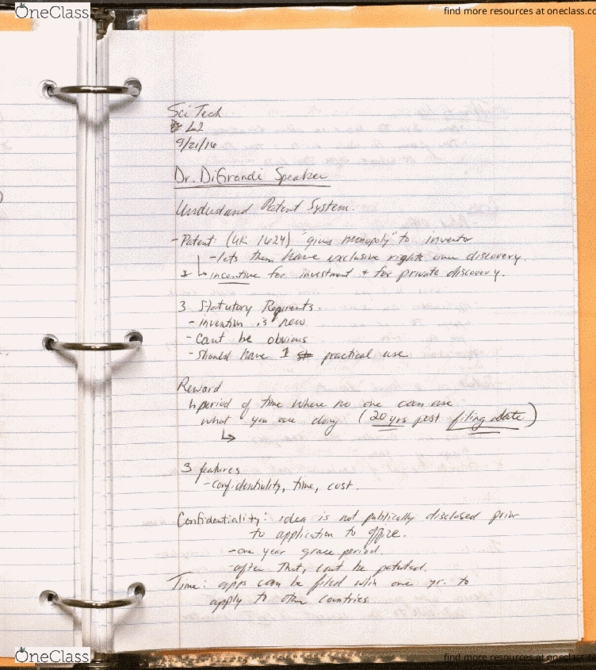 OneClass
find more resources at oneclass.co
Sci Tech
L2
9/21/16
Dr. DiGrandi Speaker
Understand Patent System.
- Patent: (UK 1424) "gives monopoly" to inventor
- lets them have exclusive rights over discovery.
incentive for investment + for private discovery.
3 Statutory Reqments.
- invention is new
- Cant be obvious
- Should have 1 practical use
Reward
↳ period of time where no one can use
what you are doing (20 yrs past filing date)
↳
3 features
- confidentiality, time, cost.
Confidentiality: idea is not publically disclosed prior
to application to office.
- one year grace period.
- after that, cant be patented.
Time: apps can be filed w/in one yr. to
apply to other countries
OneClass
find more resources at oneclass.co